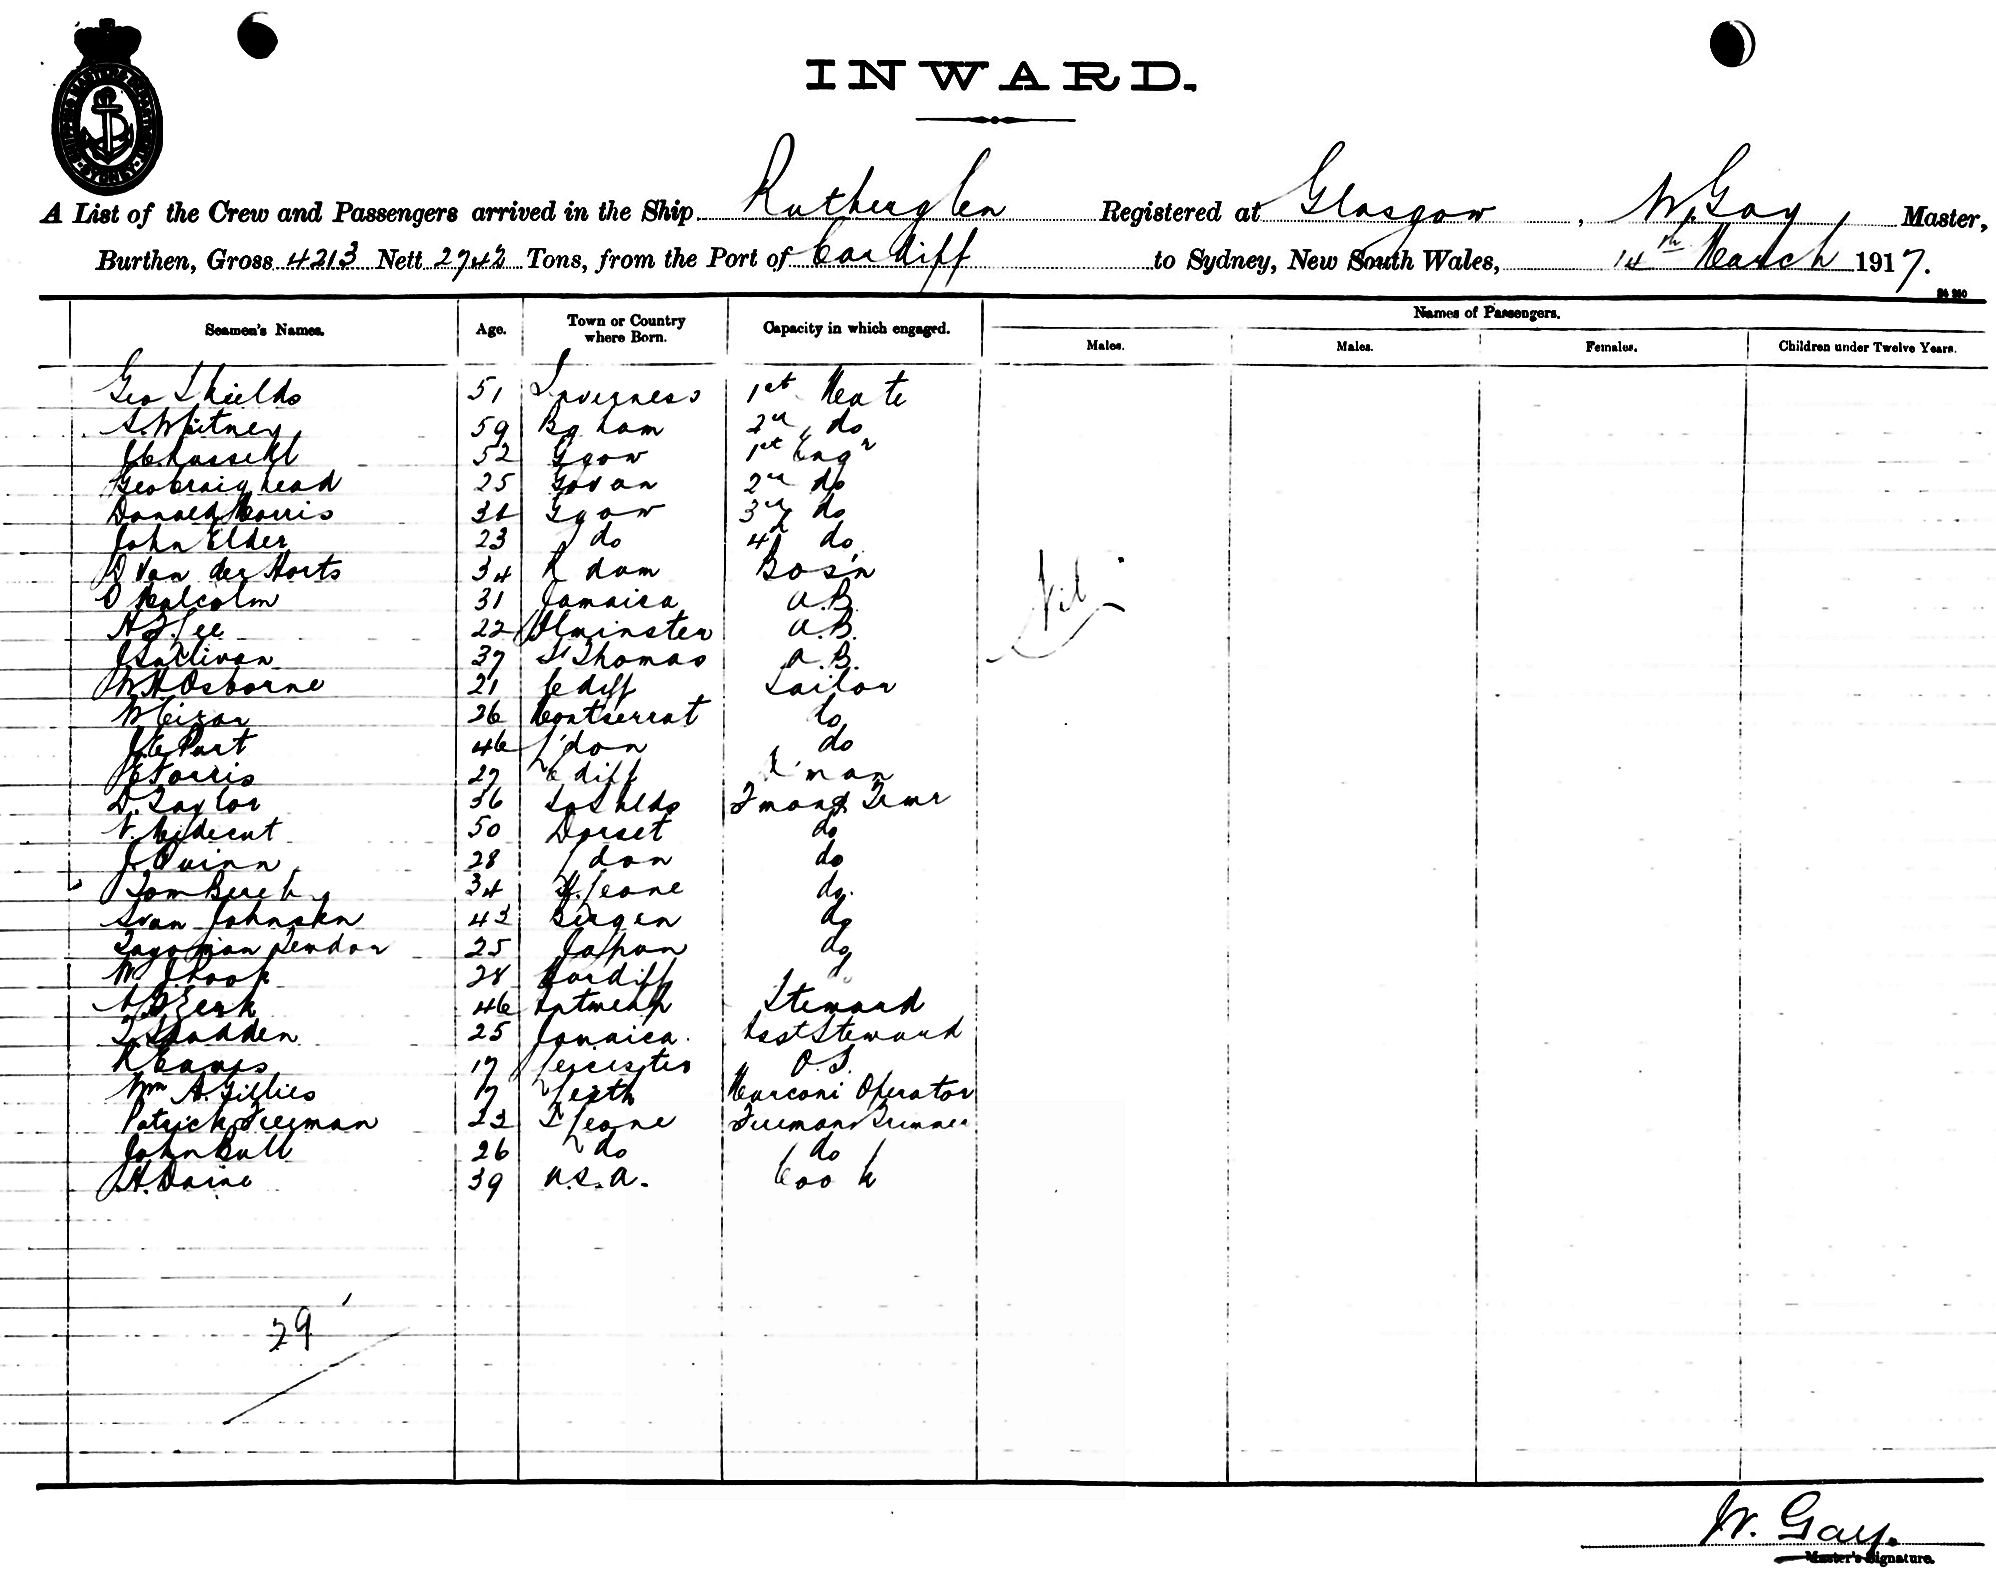 INWARD.
A List of the Crew and Passengers arrived in the Ship Rutherglen Registered at Glasgow, W. Gay, Master,
Burthen, Gross 4213 Nett 2742 Tons, from the Port of Cardiff to Sydney, New South Wales, 14th March 1917.
Names of Passengers.
Seamen's Names. Age. Town or Country where Born. Capacity in which engaged. Males. Males. Females. Children under Twelve Years.
Geo Shields 51 Inverness 1st Mate
S. Whitney 59 Bgham 2nd do
J C Russell 52 Ggow 1st Engr
Geo Craighead 25 Govan 2nd do
Donald Morris Ggow 3rd do
John Elder 23 do 4th do
D Van der Horts 34 R dam Bos'n
O Malcolm 31 Jamaica A.B.
H J Lee 22 Ilminster A.B.
J Sullivan 37 St Thomas A.B.
W H Osborne 21 Cdiff Sailor
W 26 Montserrat do
J E Part 46 L'don do
E Torris 27 Cdiff
D. Taylor 36 So Shlds Fman & Trmr
50 Dorset do
J. Quinn 28 Ldon do
Tom Berch 34 S. Leone do.
Ivan Johnsen 43 Bergen do
25 Japan do
W J Rook 28 Cardiff
46 Antwerp Steward
25 Jamaica. Asst Steward
R Eames 17 Leicester O.S.
Wm A. Gillies 17 Leith Marconi Operator
Patrick Freeman 23 S Leone Fireman & Trimmer
John Bull 26 do do
H. Daine 39 U.S.A. Cook
Nil
29
W. Gay.
Master's Signature.